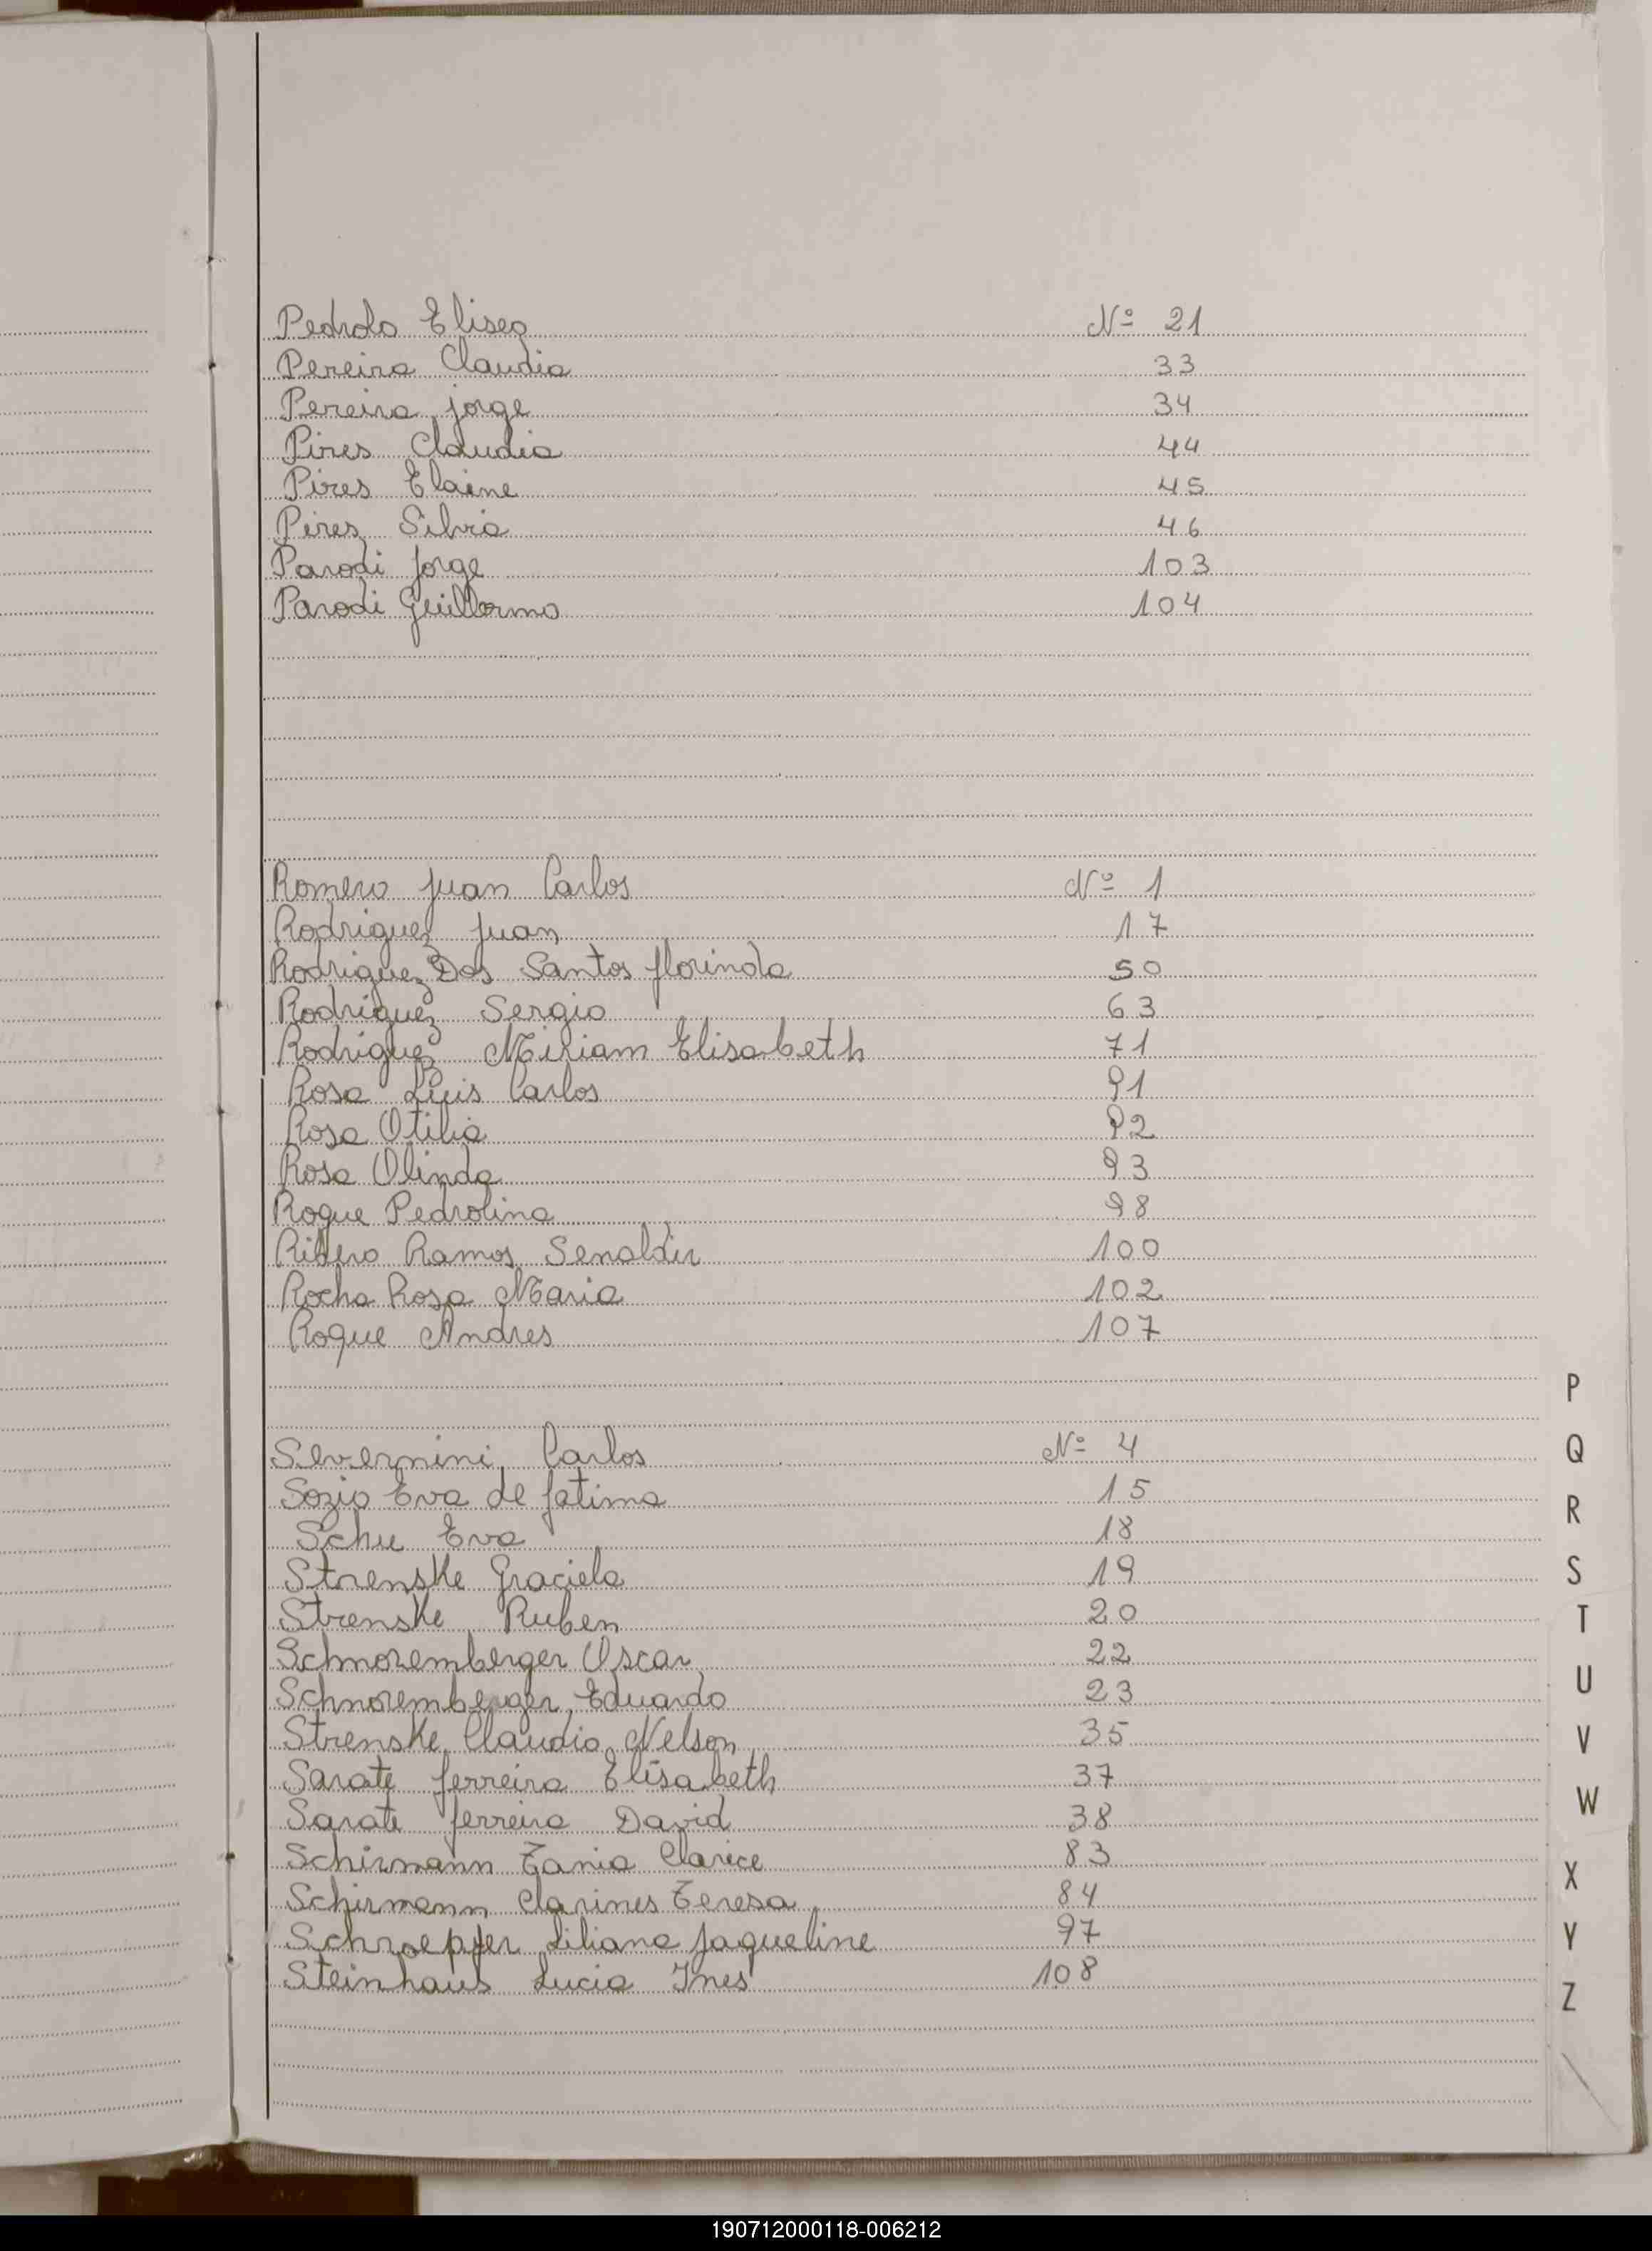 Pedrolo Eliseo Nº 21
Pereira Claudia 33
Pereira jorge 34
Pires Claudia 44
Pires Elaine 45
Pires Silvia 46
Parodi Jorge 103
Parodi Guillermo 104
Romero Juan Carlos Nº 1
Rodriguez Juan 17
Rodriguez Dos Santos florinda 50
Rodriguez Sergio 63
Rodriguez Miriam Elisabeth 71
Rosa Luis Carlos 91
Rosa Otilia 92
Rosa Olinda 93
Roque Pedrolina 98
Ribero Ramos Senaldir 100
Rocha Rosa Maria 102
Roque Andres 107
Severnini Carlos Nº 4
Sozio Eva de fatima 15
Schu Eva 18
Strenske Graciela 19
Strenske Ruben 20
Schnoremberger Oscar 22
Schnoremberger Eduardo 23
Strenske Claudio Nelson 35
Sarate ferreira Elisabeth 37
Sarate ferreira David 38
Schirmann Tania Clarice 83
Schirmann Clarines Teresa 84
Schroepfer Liliana Jaqueline 97
Steinhaus Lucia Ines 108
P
Q
R
S
T
U
V
W
X
Y
Z
190712000118-006212